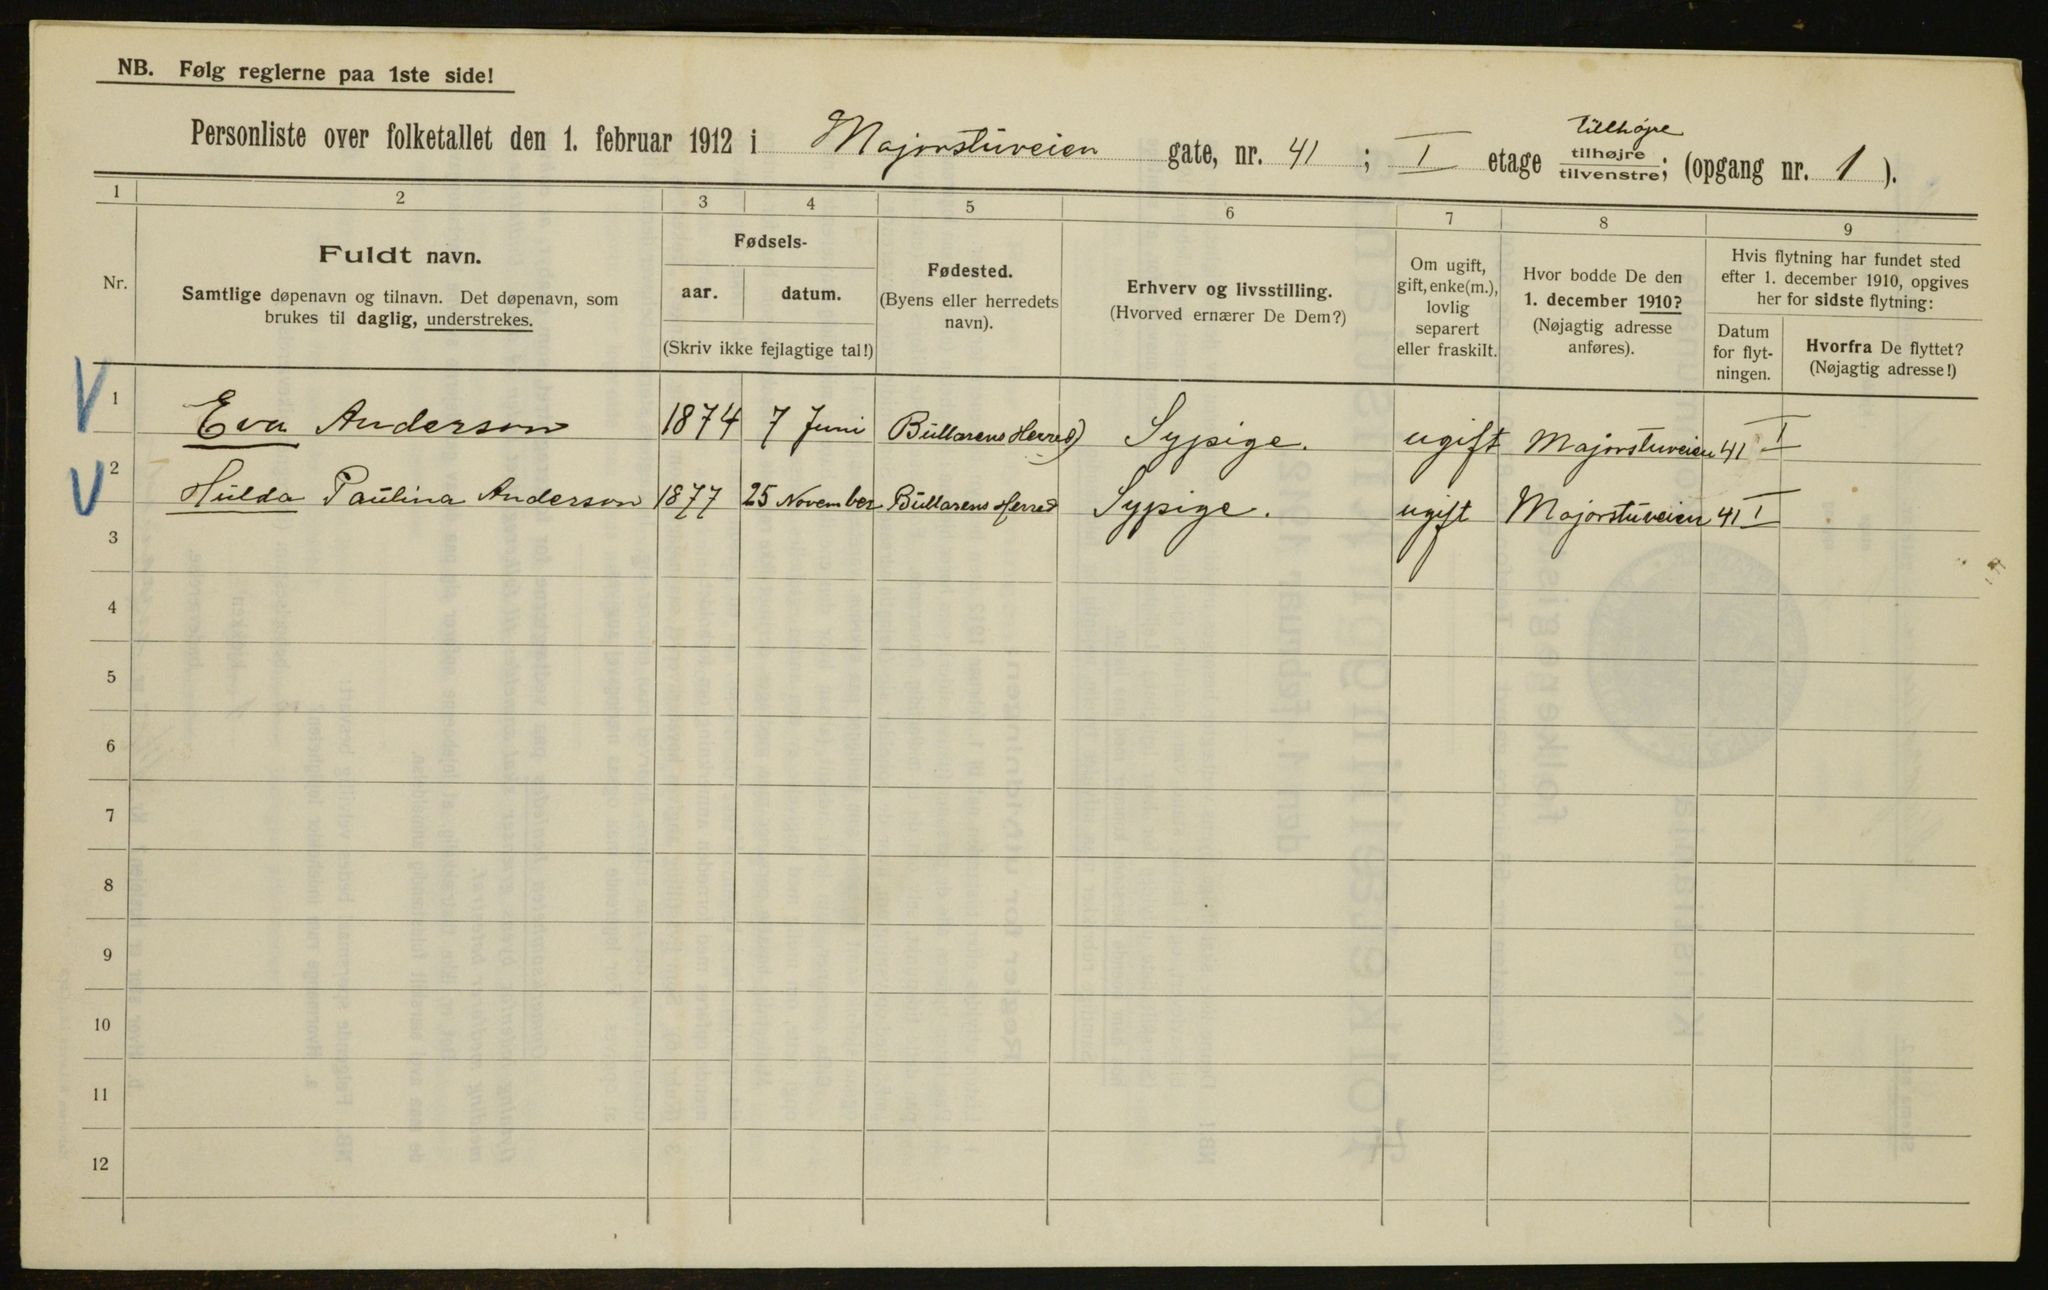 NB. Følg reglerne paa 1ste side!
Personliste over folketallet den 1. februar 1912 i Majorstuveien gate, nr. 41 ; I etage tilhøjre/tilvenstre; Tillhøjre (opgang nr. 1 ).
1 2 3 4 5 6 7 8 9
Nr.
Fuldt navn.
Samtlige døpenavn og tilnavn. Det døpenavn, som
brukes til daglig, understrekes.
Fødsels-
aar. datum.
(Skriv ikke fejlagtige tal!)
Fødested.
(Byens eller herredets
navn).
Erhverv og livsstilling.
(Hvorved ernærer De Dem?)
Om ugift,
gift, enke(m.),
lovlig
separert
eller fraskilt.
Hvor bodde De den
1. december 1910?
(Nøjagtig adresse
anføres).
Hvis flytning har fundet sted
efter 1. december 1910, opgives
her for sidste flytning:
Datum
for flyt-
ningen.
Hvorfra De flyttet?
(Nøjagtig adresse!)
1 Eva Anderson 1874 7 Juni Bullarens Herred) Sypige. ugift Majorstuveien 41 I
2 Hulda Paulina Anderson 1877 25 November Bullarens Herred Sypige. ugift Majorstuveien 41 I
3
4
5
6
7
8
9
10
11
12